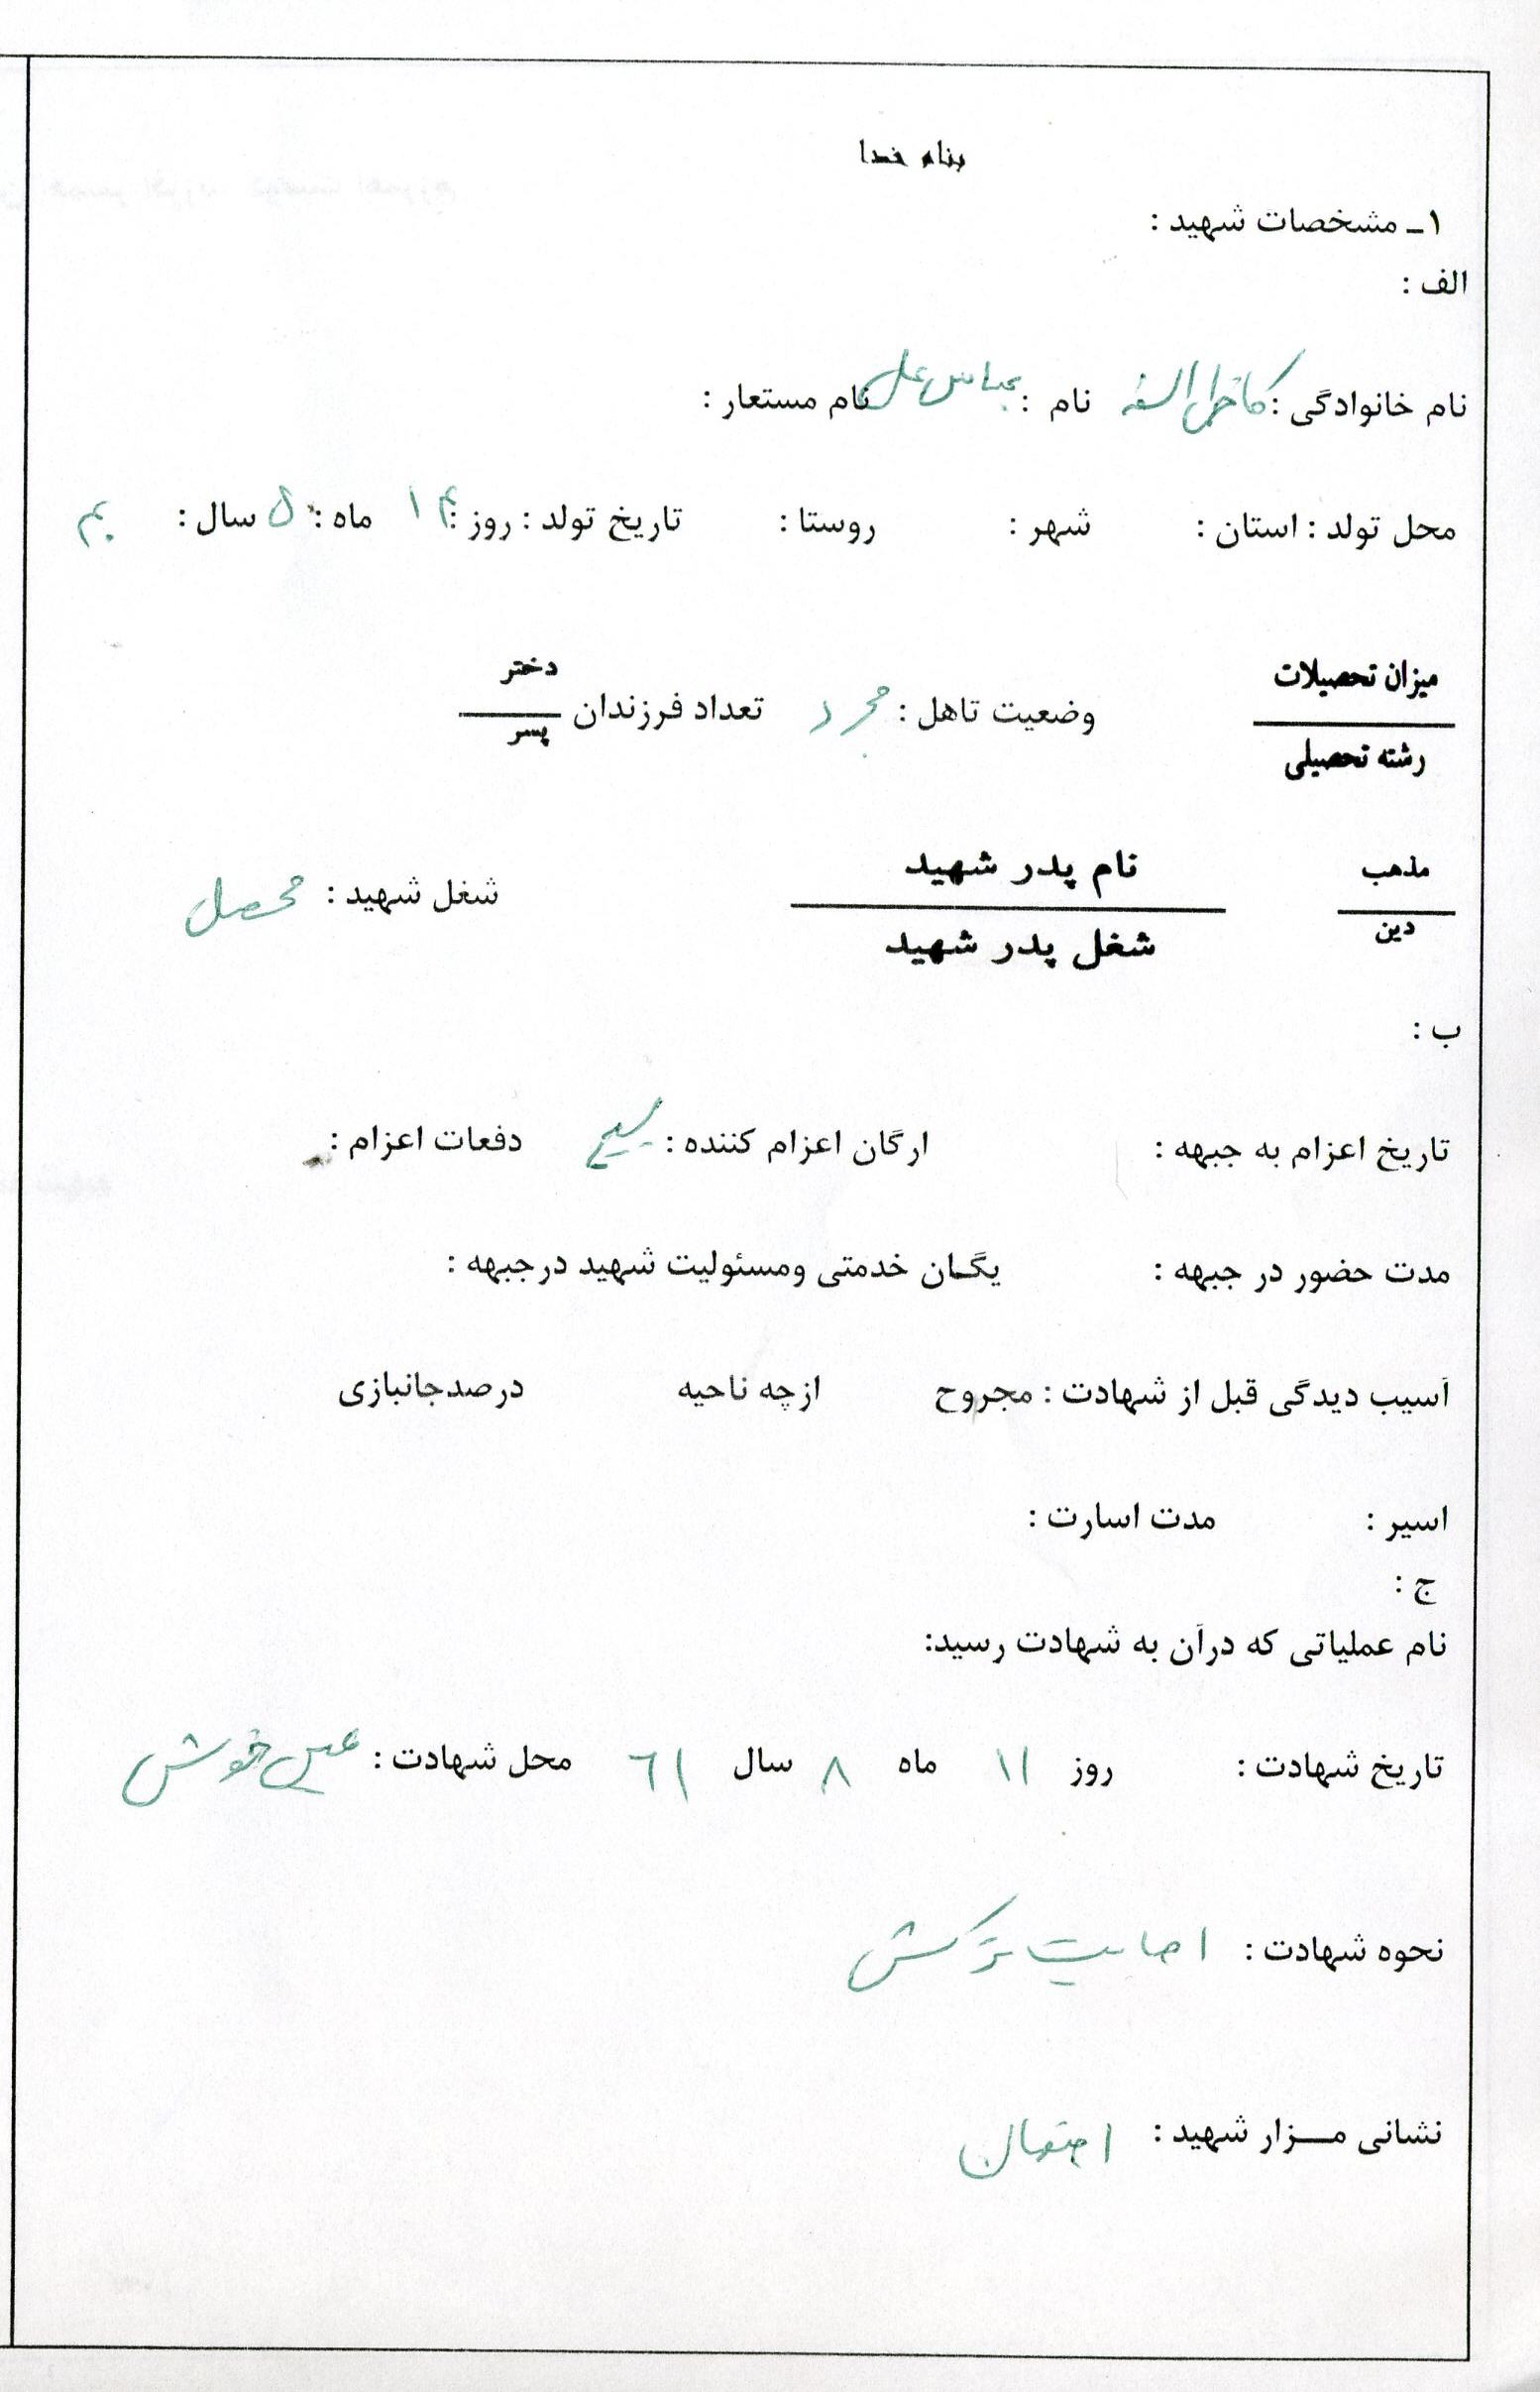 بنام خدا
۱ـ مشخصات شهید :
الف :
نام خانوادگی : نام : عباسعلی نام مستعار :
محل تولد : استان : شهر : روستا : تاریخ تولد : روز : ۱۴ ماه : ۵ سال : ۴۰
میزان تحصیلات
رشته تحصیلی
وضعیت تاهل : مجرد تعداد فرزندان
دختر
پسر
مذهب
دین
نام پدر شهید
شغل پدر شهید
شغل شهید : محصل
ب :
تاریخ اعزام به جبهه : ارگان اعزام کننده : بسیج دفعات اعزام :
مدت حضور در جبهه : یگان خدمتی ومسئولیت شهید درجبهه :
آسیب دیدگی قبل از شهادت : مجروح ازچه ناحیه درصدجانبازی
اسیر : مدت اسارت :
ج :
نام عملیاتی که درآن به شهادت رسید:
تاریخ شهادت : روز ۱۱ ماه ۸ سال ۶۱ محل شهادت : عین خوش
نحوه شهادت : اصابت ترکش
نشانی مـــزار شهید :